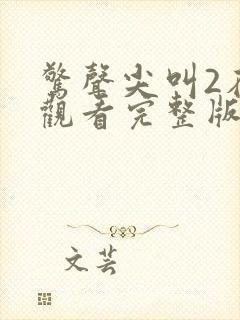 驚聲尖叫2在
觀看完整版
文芸